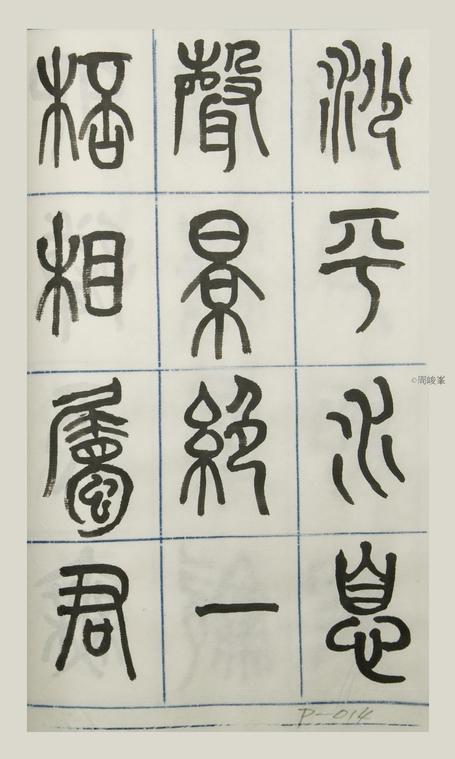 沙平水息
聲景絕一
桮相屬君
P-014
©周峻峯